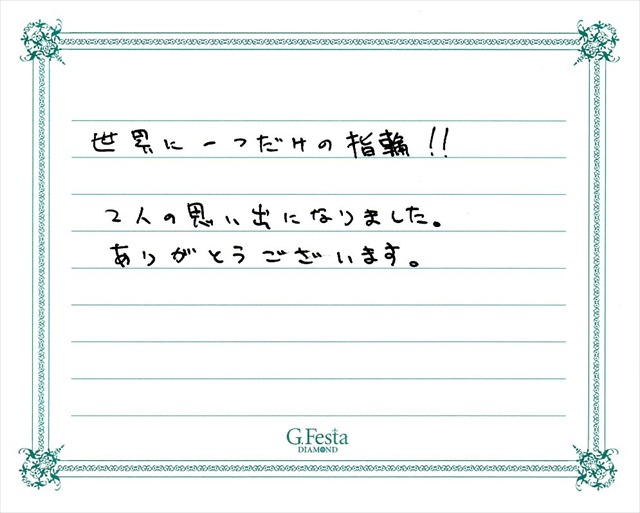 世界に一つだけの指輪!!
2人の思い出になりました。
ありがとうございます。
G.Festa
DIAMOND